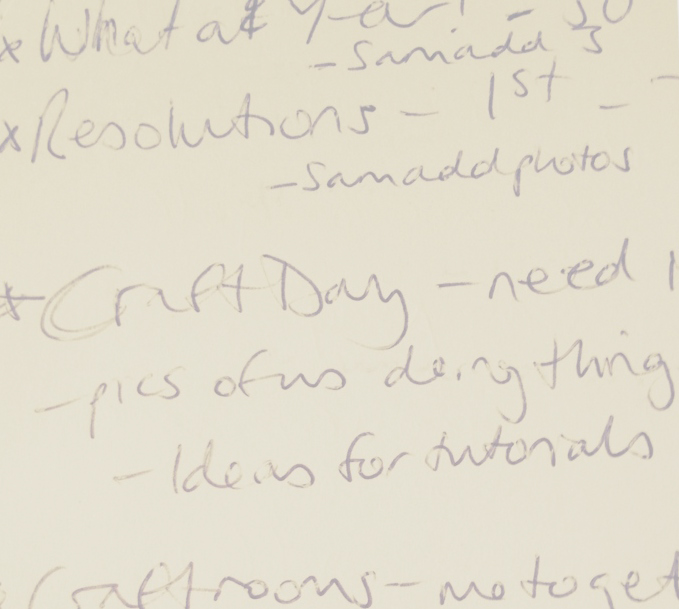 * What a Year! - 30
- Sam add 3
* Resolutions - 1st -
- Sam add photos
* Craft Day - need
- pics of us doing thing
- Ideas for tutorials
Craftrooms - me to get